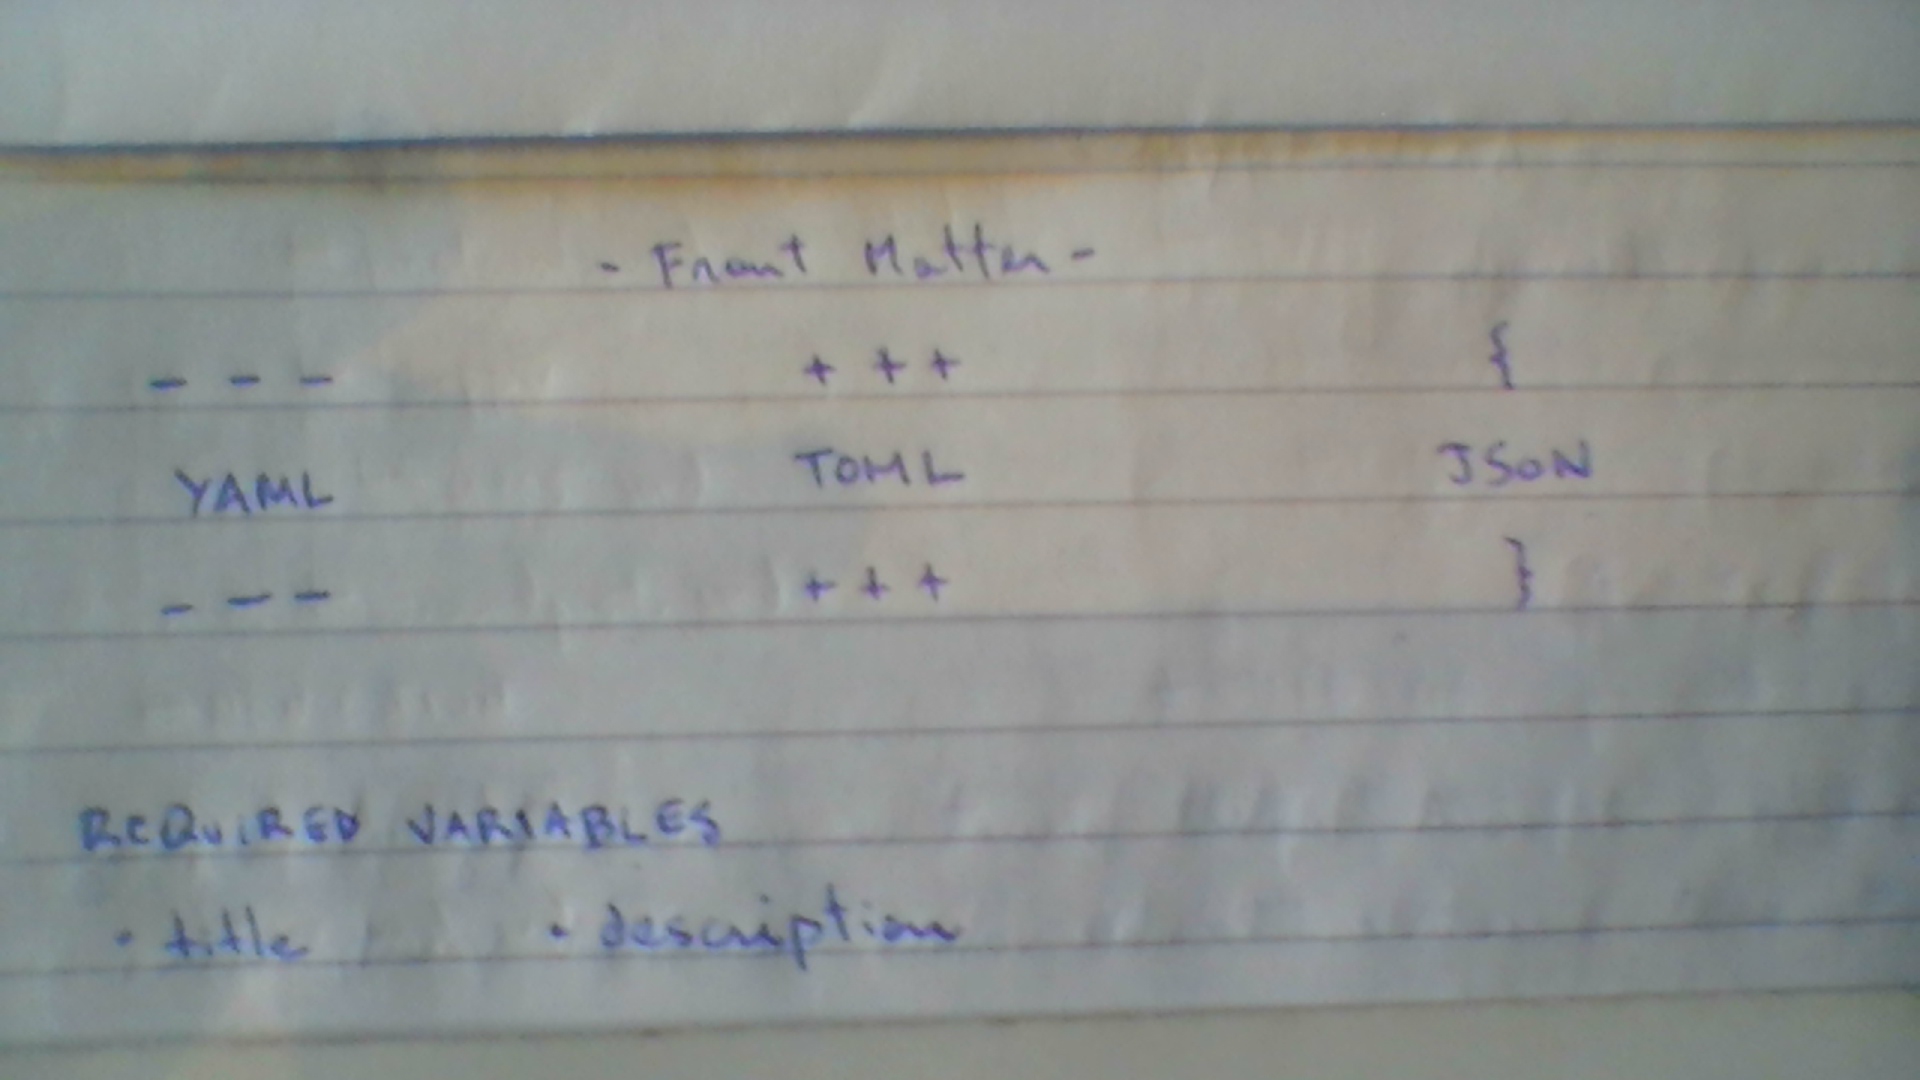 - Front Matter -
- - - + + + {
YAML TOML JSON
- - - + + + }
REQUIRED VARIABLES
· title · description